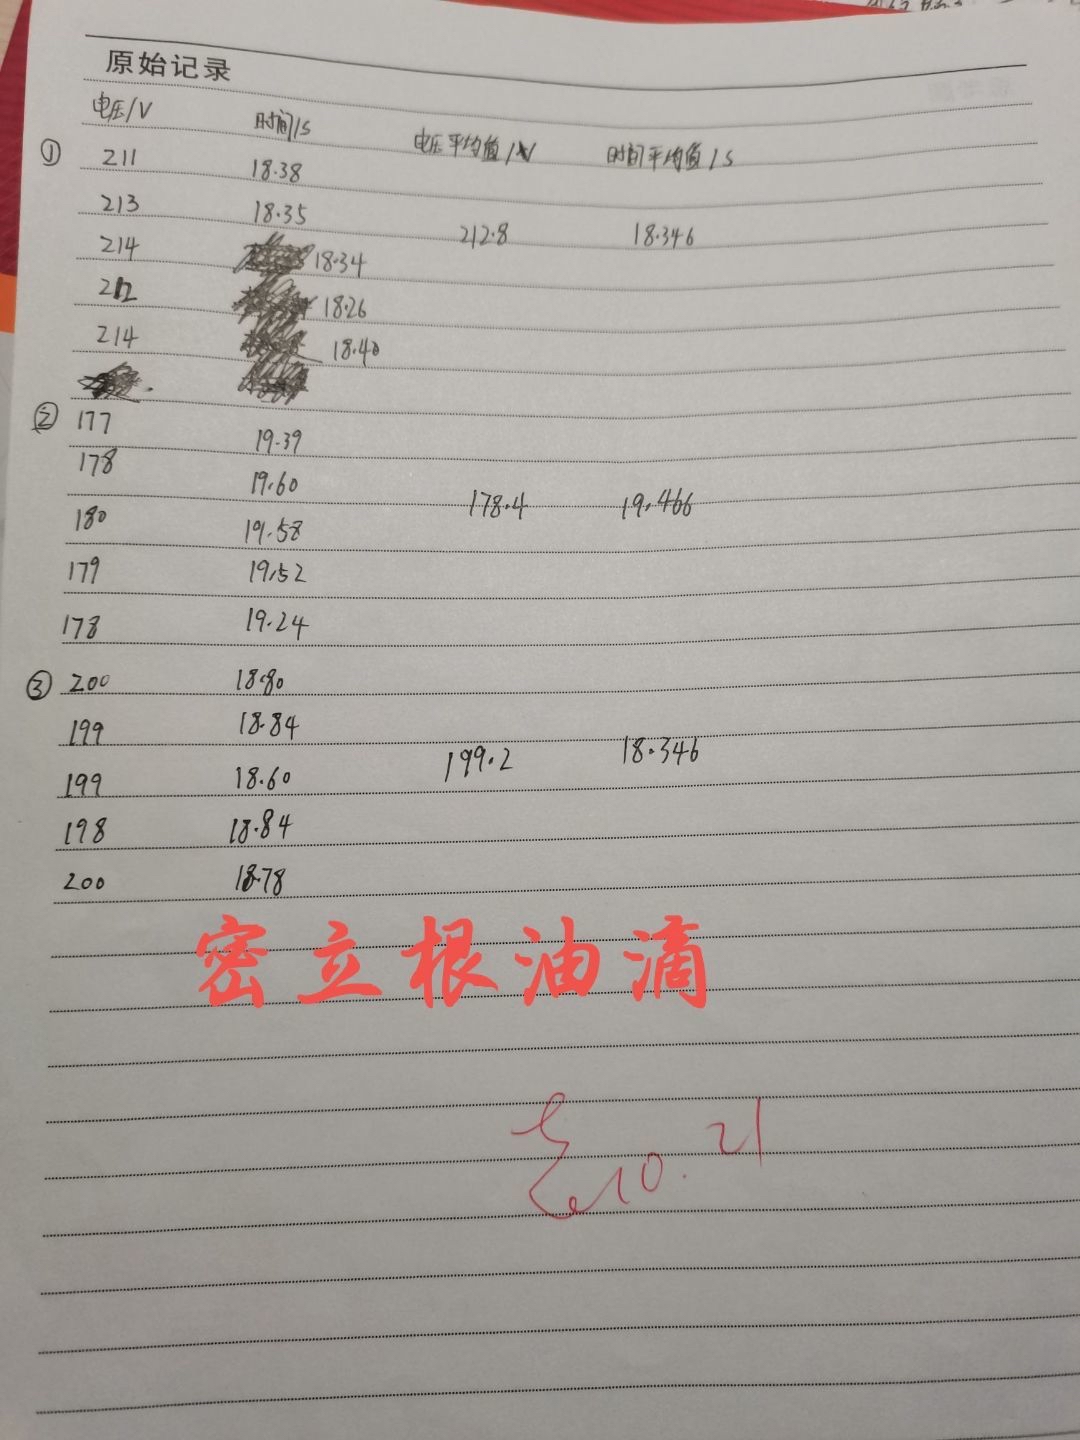 原始记录
电压/V 时间/s 电压平均值/V 时间平均值/s
① 211 18.38
213 18.35 212.8 18.346
214 18.34
212 18.26
214 18.40
② 177 19.39
178 19.60 178.4 19.466
180 19.58
179 19.52
178 19.24
③ 200 18.80
199 18.84 199.2 18.346
199 18.60
198 18.84
200 18.78
密立根油滴
10.21